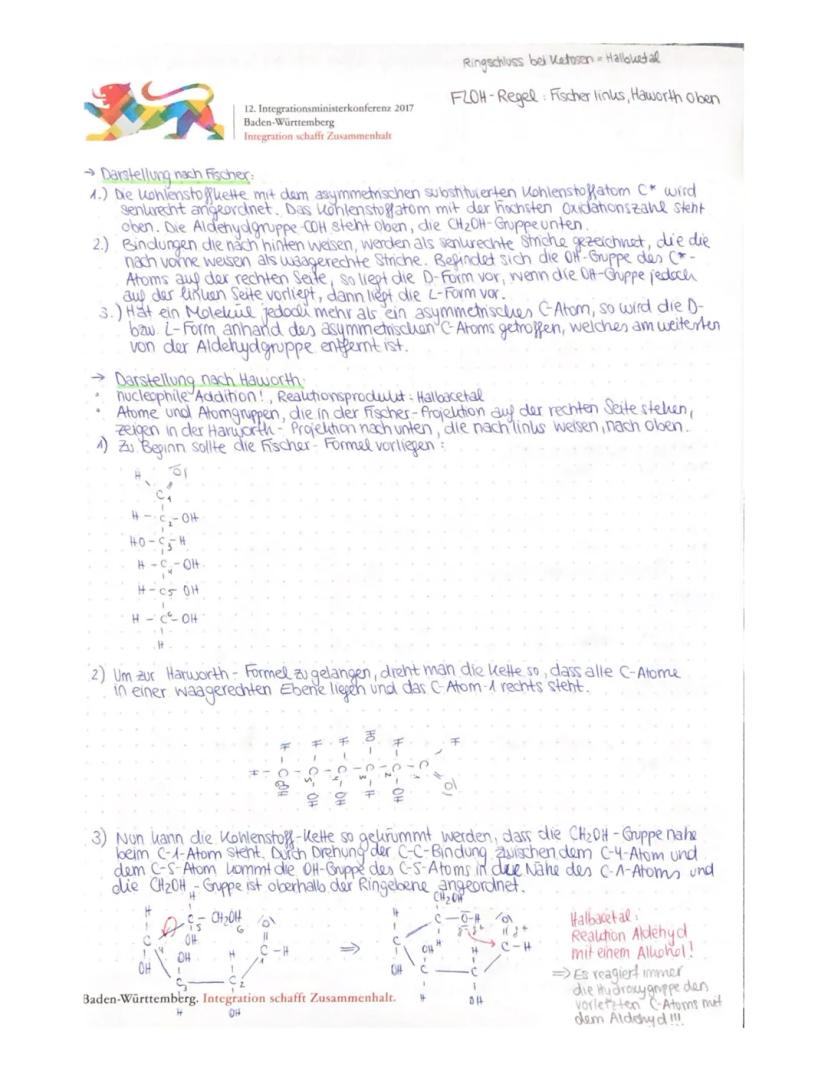 Ringschluss bei Ketosen = Halbketal
FLOH-Regel: Fischer links, Haworth Oben
12. Integrationsministerkonferenz 2017
Baden-Württemberg
Integration schafft Zusammenhalt
→ Darstellung nach Fischer:
1.) Die Kohlenstoffkette mit dem asymmetrischen substituierten Kohlenstoffatom C* wird
senkrecht angeordnet. Das Kohlenstoffatom mit der höchsten Oxidationszahl steht
oben. Die Aldehydgruppe COH steht oben, die CH2OH-Gruppe unten.
2.) Bindungen die nach hinten weisen, werden als senkrechte Striche gezeichnet, die die
nach vorne weisen als waagerechte Striche. Befindet sich die OH-Gruppe des C*-
Atoms auf der rechten Seite, so liegt die D-Form vor, wenn die OH-Gruppe jedoch
auf der linken Seite vorliegt, dann liegt die L-Form vor.
3.) Hat ein Molekül jedoch mehr als ein asymmetrisches C-Atom, so wird die D-
bzw L-Form anhand des asymmetrischen C-Atoms getroffen, welches am weitesten
von der Aldehydgruppe entfernt ist.
→ Darstellung nach Haworth:
• nucleophile Addition!, Reaktionsprodukt: Halbacetal
• Atome und Atomgruppen, die in der Fischer-Projektion auf der rechten Seite stehen,
zeigen in der Harworth-Projektion nach unten, die nach links weisen, nach oben.
1) Zu Beginn sollte die Fischer-Formel vorliegen:
H O
C1
H-C2-OH
HO-C3-H
H-C4-OH
H-C5 OH
H-C6-OH
H
2) Um zur Harworth-Formel zu gelangen, dreht man die Kette so, dass alle C-Atome
in einer waagerechten Ebene liegen und das C-Atom-1 rechts steht.
H H H OH H H
H-C-C-C-C-C-C
OH OH OH H OH O
3) Nun kann die Kohlenstoff-Kette so gekrümmt werden, dass die CH2OH-Gruppe nahe
beim C-1-Atom steht. Durch Drehung der C-C-Bindung zwischen dem C-4-Atom und
dem C-5-Atom kommt die OH-Gruppe des C-5-Atoms in die Nähe des C-1-Atoms und
die CH2OH-Gruppe ist oberhalb der Ringebene angeordnet.
H CH2OH
H C5-CH2OH 6 O H C-O-H O
C 4 OH C-H C OH H C-H
OH OH H 1 ⇒ OH C C
C3 C2 H OH
H OH
Halbacetal:
Reaktion Aldehyd
mit einem Alkohol!
⇒ Es reagiert immer
die Hydroxygruppe des
vorletzten C-Atoms mit
dem Aldehyd!!!
Baden-Württemberg. Integration schafft Zusammenhalt.